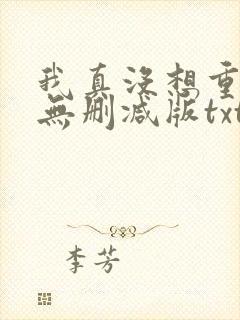 我真没想重
無删减版txt
李芳